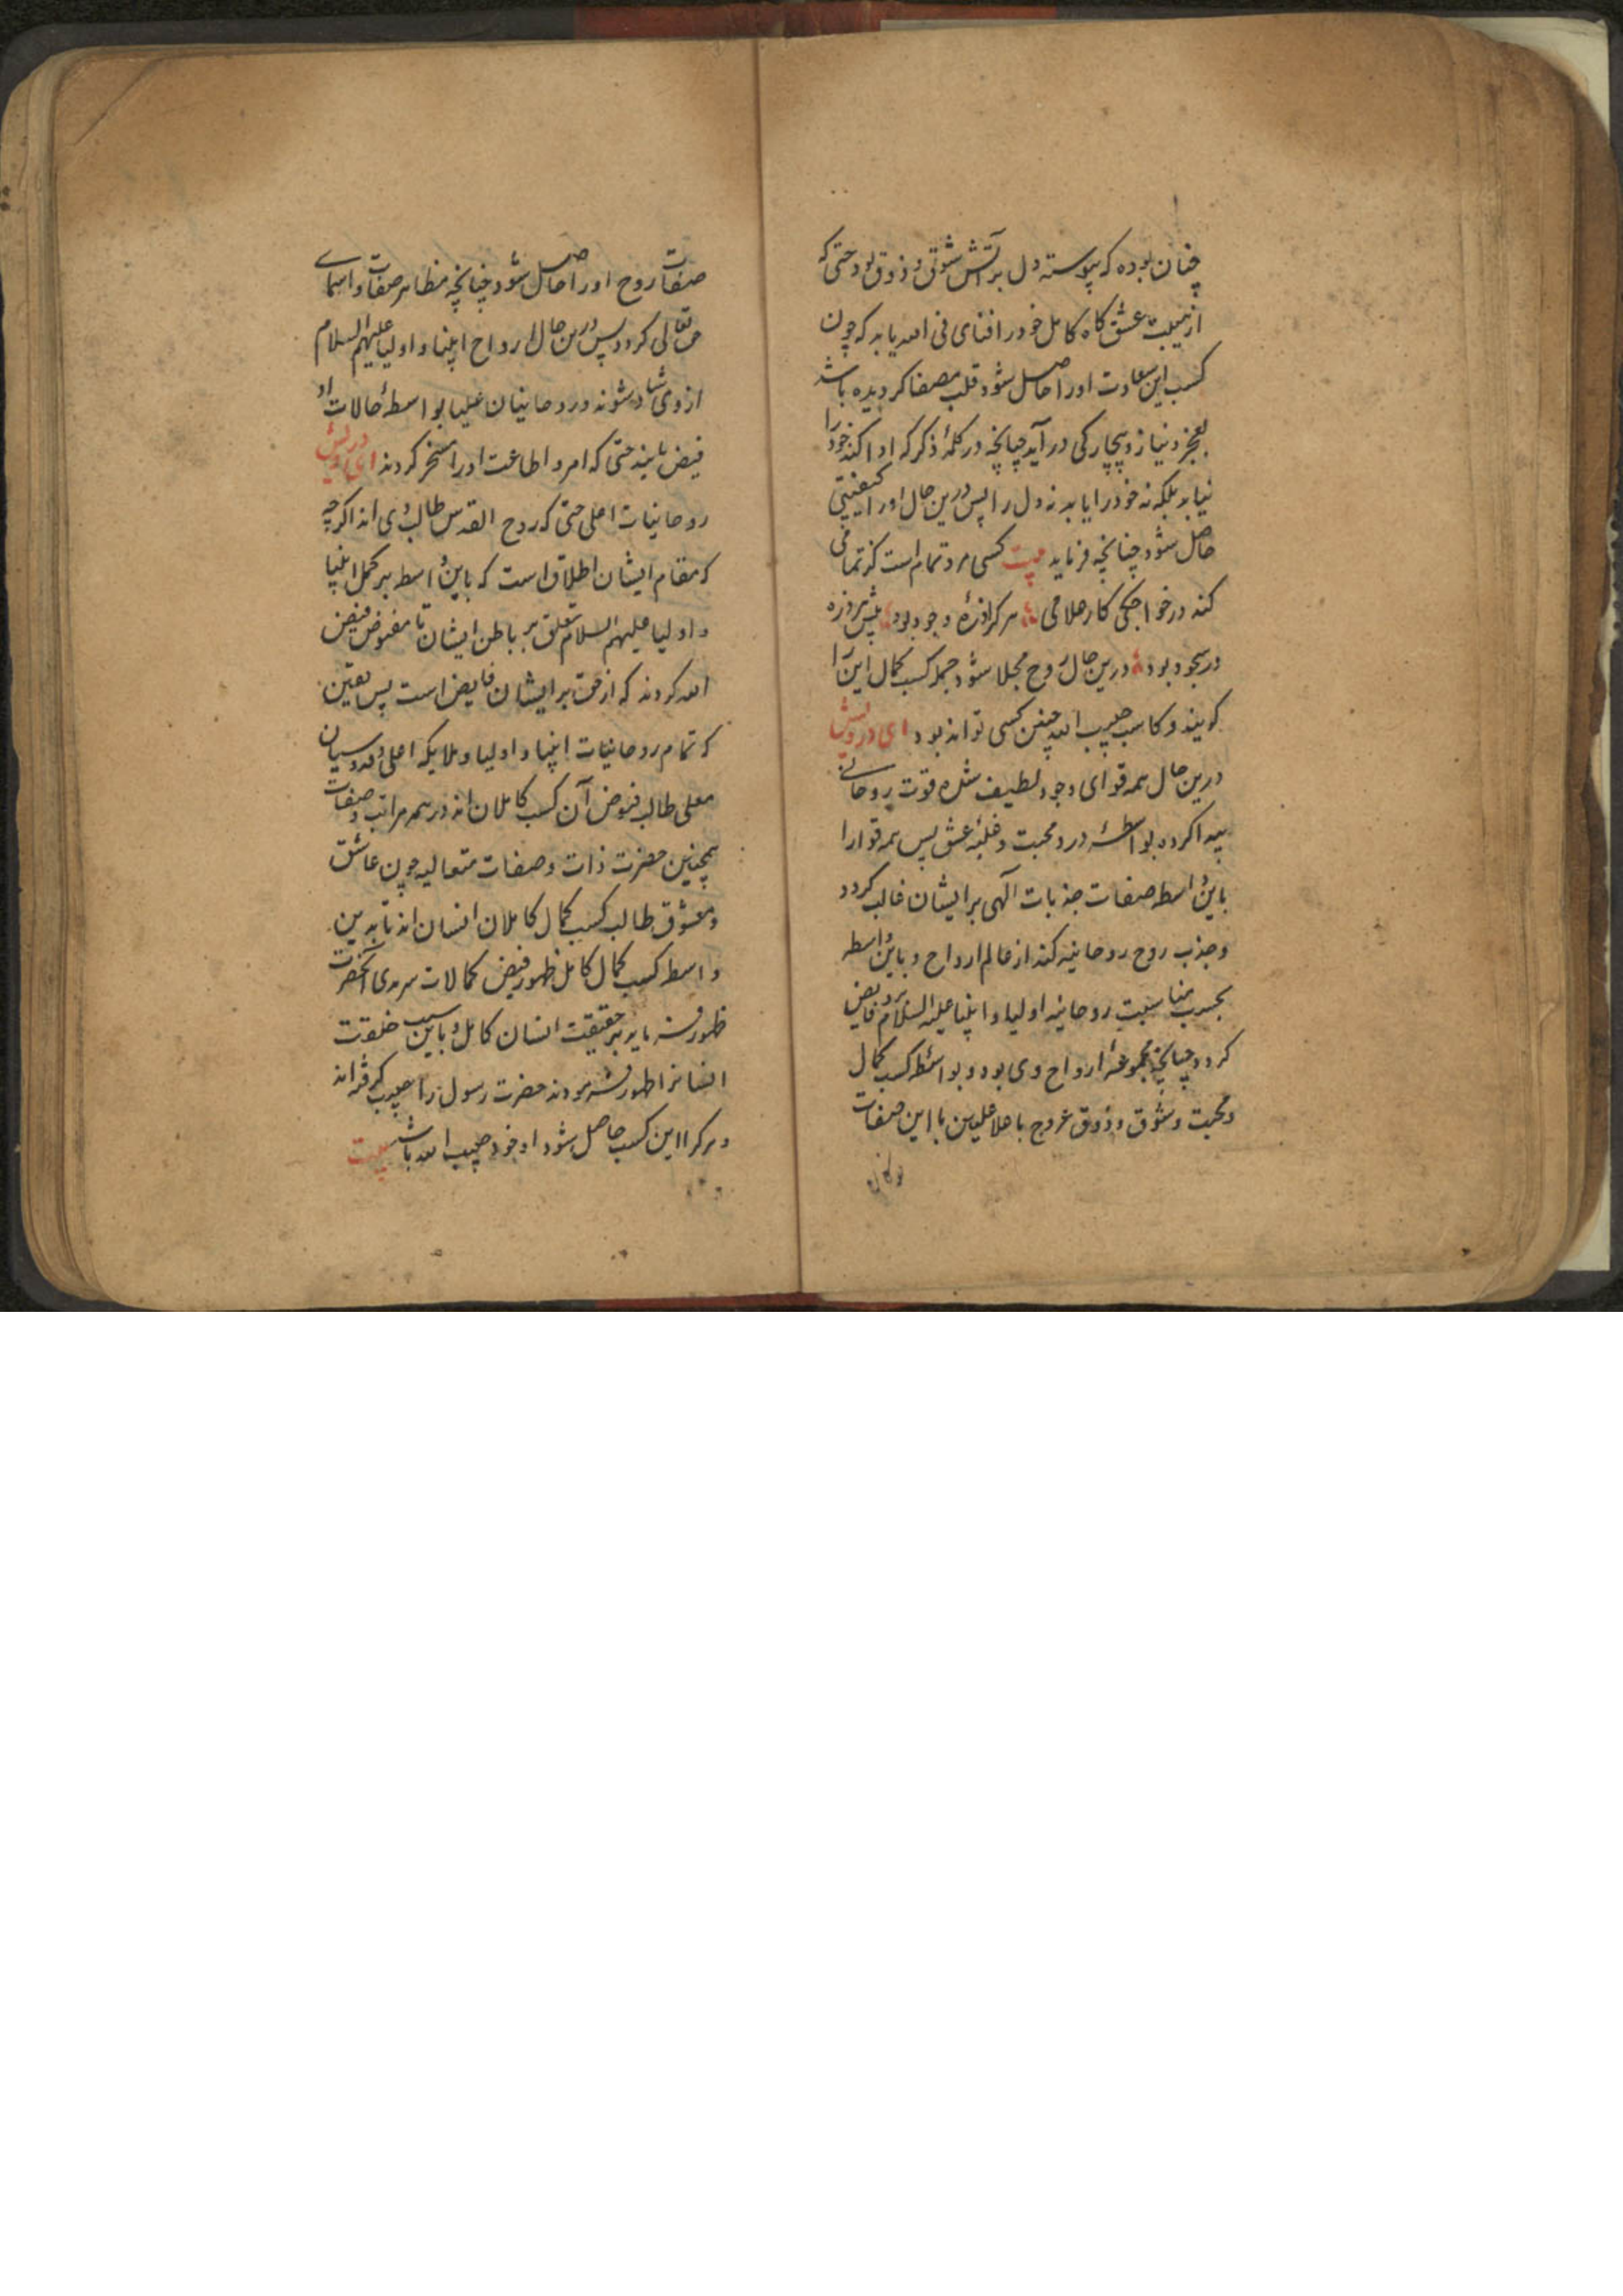 چنان بوده که پیوسته دل بر آتش شوق و ذوق بود حتی که
از هیبت عشق گاه کامل خود را فنای فی الله یابد که چون
کسب این سعادت او را حاصل شود قلب مصفا کردیده باشد
بعجز و نیاز و بیچارکی در آید چنانچه در کلمهٔ ذکر که ادا کند خود را
نیابد بلکه نه خود را یابد نه دل را پس درین حال او را کیفیتی
حاصل شود چنانچه فرماید بیت کسی مرد تمام است کز تمامی
کند در خواجکی کار غلامی هر کرا ذرهٔ وجود بود پیش هر ذره
در سجود بود درین حال روح مجلا شود جمله کسب کمال این را
کویند و کاسب حبیب الله چنین کسی تواند بود ای درویش
درین حال همه قوای وجود لطیف شده قوت روحانی
پیدا کرده بواسطهٔ درد محبت و غلبهٔ عشق پس همه قوا را
باین واسطه صفات جذبات الهی بر ایشان غالب کردد
و جذب روح روحانیه کند از عالم ارواح و باین واسطه
بحسب مناسبت روحانیه اولیا و انبیا علیه السلام برو فایض
کردد چنانچه مجموعهٔ ارواح وی بود و بواسطهٔ کسب کمال
و محبت و شوق و ذوق عروج با علا علیین با این صفات
صفات روح او را حاصل شود چنانچه مظاهر صفات و اسمای
حق تعالی کردد پس درین حال ارواح انبیا و اولیا علیهم السلام
از وی شاد شوند و روحانیان علیا بواسطهٔ حالات او
فیض یابند حتی که امر و اطاعت او را مسخر کردند ای درویش
روحانیات اعلی حتی که روح القدس طالب وی اند اکرچه
که مقام ایشان اطلاق است که باین واسطه بر کمل انبیا
و اولیا علیهم السلام تعلق بر باطن ایشان تا مفیوض فیض
الله کردند که از حق بر ایشان فایض است پس یقین
که تمام روحانیات انبیا و اولیا و ملایکه اعلی و قدوسیان
معلی طالب فیوض آن کسب کاملان اند در همه مراتب و صفات
همچنین حضرت ذات و صفات متعالیه چون عاشق
و معشوق طالب کسب کمال کاملان انسان اند تا بدین
واسطه کسب کمال کامل ظهور فیض کمالات سرمدی آنحضرت
ظهور فرماید بر حقیقت انسان کامل و باین سبب خلقت
انسان را ظهور فرمودند حضرت رسول را حبیب کرفته اند
و هر کرا این کسب حاصل شود او خود حبیب الله باشد بیت